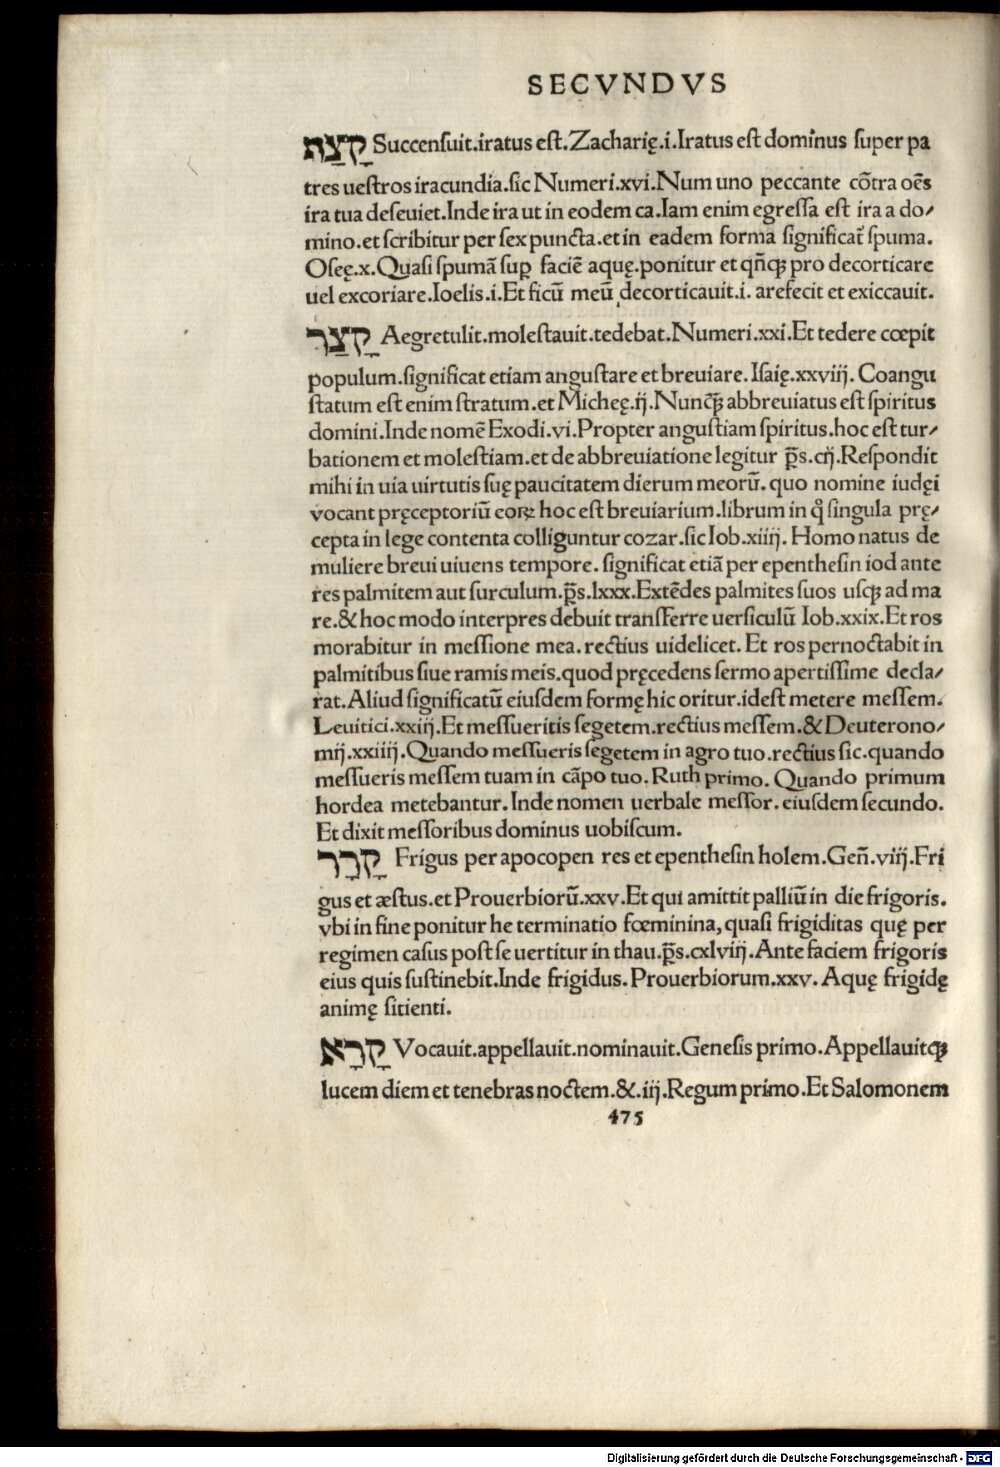 SECVNDVS
קָצַת Succensuit.iratus est.Zacharię.i.Iratus est dominus super pa
tres uestros iracundia.sic Numeri.xvi.Num uno peccante cōtra oēs
ira tua deseuiet.Inde ira ut in eodem ca.Iam enim egressa est ira a do⸗
mino.et scribitur per sex puncta.et in eadem forma significat᷑ spuma.
Oseę.x.Quasi spumā suꝑ faciē aquę.ponitur et qn̄cꝙ pro decorticare
uel excoriare.Ioelis.i.Et ficū meū decorticauit.i. arefecit et exiccauit.
קָצַר Aegretulit.molestauit.tedebat.Numeri.xxi.Et tedere cœpit
populum.significat etiam angustare et breuiare. Isaię.xxviij. Coangu
statum est enim stratum.et Micheę.ij.Nuncꝙ̄ abbreuiatus est spiritus
domini.Inde nomē Exodi.vi.Propter angustiam spiritus.hoc est tur⸗
bationem et molestiam.et de abbreuiatione legitur p̄s.cij.Respondit
mihi in uia uirtutis suę paucitatem dierum meorū. quo nomine iudęi
vocant pręceptoriū eoꝝ hoc est breuiarium.librum in qͦ singula prę⸗
cepta in lege contenta colliguntur cozar.sic Iob.xiiij. Homo natus de
muliere breui uiuens tempore. significat etiā per epenthesin iod ante
res palmitem aut surculum.p̄s.lxxx.Extēdes palmites suos uscꝙ ad ma
re.&hoc modo interpres debuit transferre uersiculū Iob.xxix.Et ros
morabitur in messione mea.rectius uidelicet. Et ros pernoctabit in
palmitibus siue ramis meis.quod pręcedens sermo apertissime decla⸗
rat.Aliud significatū eiusdem formę hic oritur.idest metere messem.
Leuitici.xxiij.Et messueritis segetem.rectius messem.&Deuterono⸗
mij.xxiiij.Quando messueris segetem in agro tuo.rectius sic.quando
messueris messem tuam in cāpo tuo. Ruth primo. Quando primum
hordea metebantur. Inde nomen uerbale messor. eiusdem secundo.
Et dixit messoribus dominus uobiscum.
קָרַר Frigus per apocopen res et epenthesin holem.Gen̄.viij.Fri
gus et æstus.et Prouerbiorū.xxv.Et qui amittit palliū in die frigoris.
vbi in fine ponitur he terminatio fœminina,quasi frigiditas quę per
regimen casus post se uertitur in thau.p̄s.cxlviij.Ante faciem frigoris
eius quis sustinebit.Inde frigidus.Prouerbiorum.xxv. Aquę frigidę
animę sitienti.
קָרָא Vocauit.appellauit.nominauit.Genesis primo.Appellauitcꝙ
lucem diem et tenebras noctem.&.iij.Regum primo.Et Salomonem
475
Digitalisierung gefördert durch die Deutsche Forschungsgemeinschaft - DFG